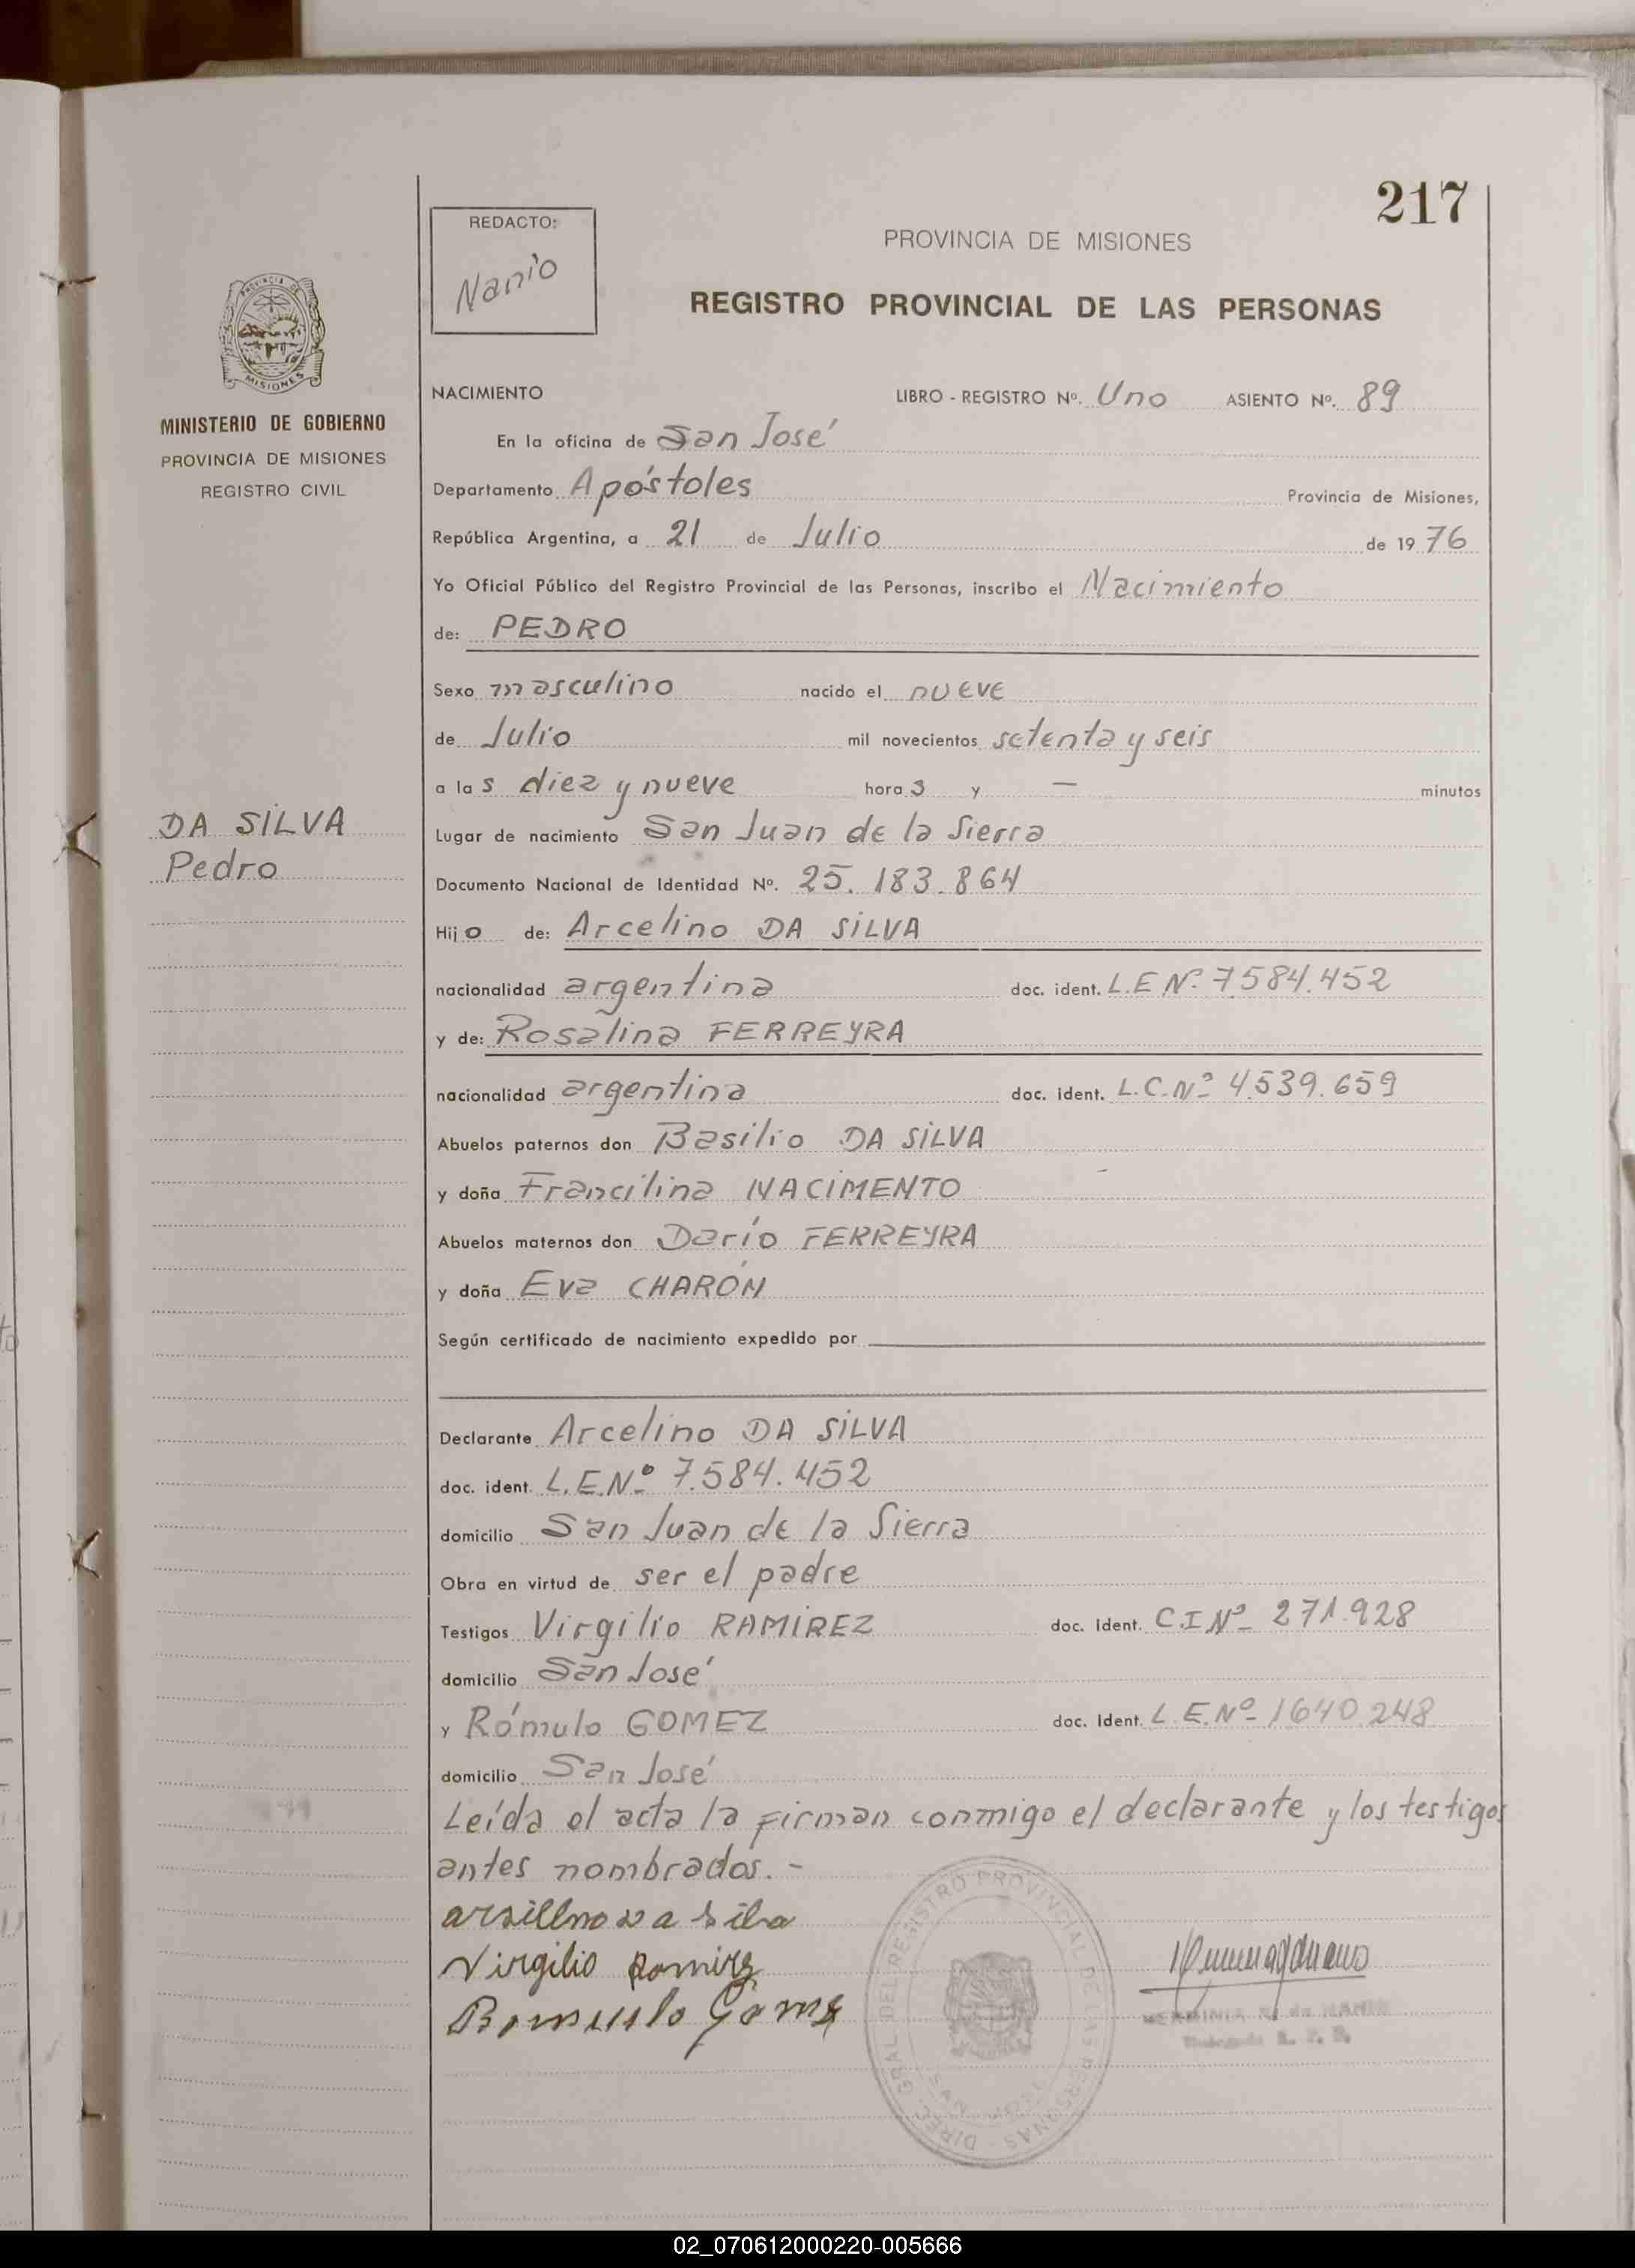 217
REDACTO:
Nanio
PROVINCIA DE MISIONES
REGISTRO PROVINCIAL DE LAS PERSONAS
PROVINCIA DE
MISIONES
MINISTERIO DE GOBIERNO
PROVINCIA DE MISIONES
REGISTRO CIVIL
NACIMIENTO LIBRO - REGISTRO Nº. Uno ASIENTO Nº. 89
En la oficina de San José
Departamento Apóstoles Provincia de Misiones,
República Argentina, a 21 de Julio de 1976
Yo Oficial Público del Registro Provincial de las Personas, inscribo el Nacimiento
de: PEDRO
Sexo masculino nacido el nueve
de Julio mil novecientos setenta y seis
a las diez y nueve horas y — minutos
DA SILVA
Pedro
Lugar de nacimiento San Juan de la Sierra
Documento Nacional de Identidad Nº. 25.183.864
Hijo de: Arcelino DA SILVA
nacionalidad argentina doc. ident. L.E Nº 7.584.452
y de: Rosalina FERREYRA
nacionalidad argentina doc. ident. L.C.Nº 4.539.659
Abuelos paternos don Basilio DA SILVA
y doña Francilina NACIMENTO
Abuelos maternos don Darío FERREYRA
y doña Eva CHARÓN
Según certificado de nacimiento expedido por
Declarante Arcelino DA SILVA
doc. ident. L.E.Nº 7.584.452
domicilio San Juan de la Sierra
Obra en virtud de ser el padre
Testigos Virgilio RAMIREZ doc. ident. C.I Nº 271.928
domicilio San José
y Rómulo GOMEZ doc. ident. L.E.Nº 1640.248
domicilio San José
Leída el acta la firman conmigo el declarante y los testigos
antes nombrados.-
Virgilio Ramirez
DIREC. GRAL DEL REGISTRO PROVINCIAL DE LAS PERSONAS
SAN JOSE
02_070612000220-005666